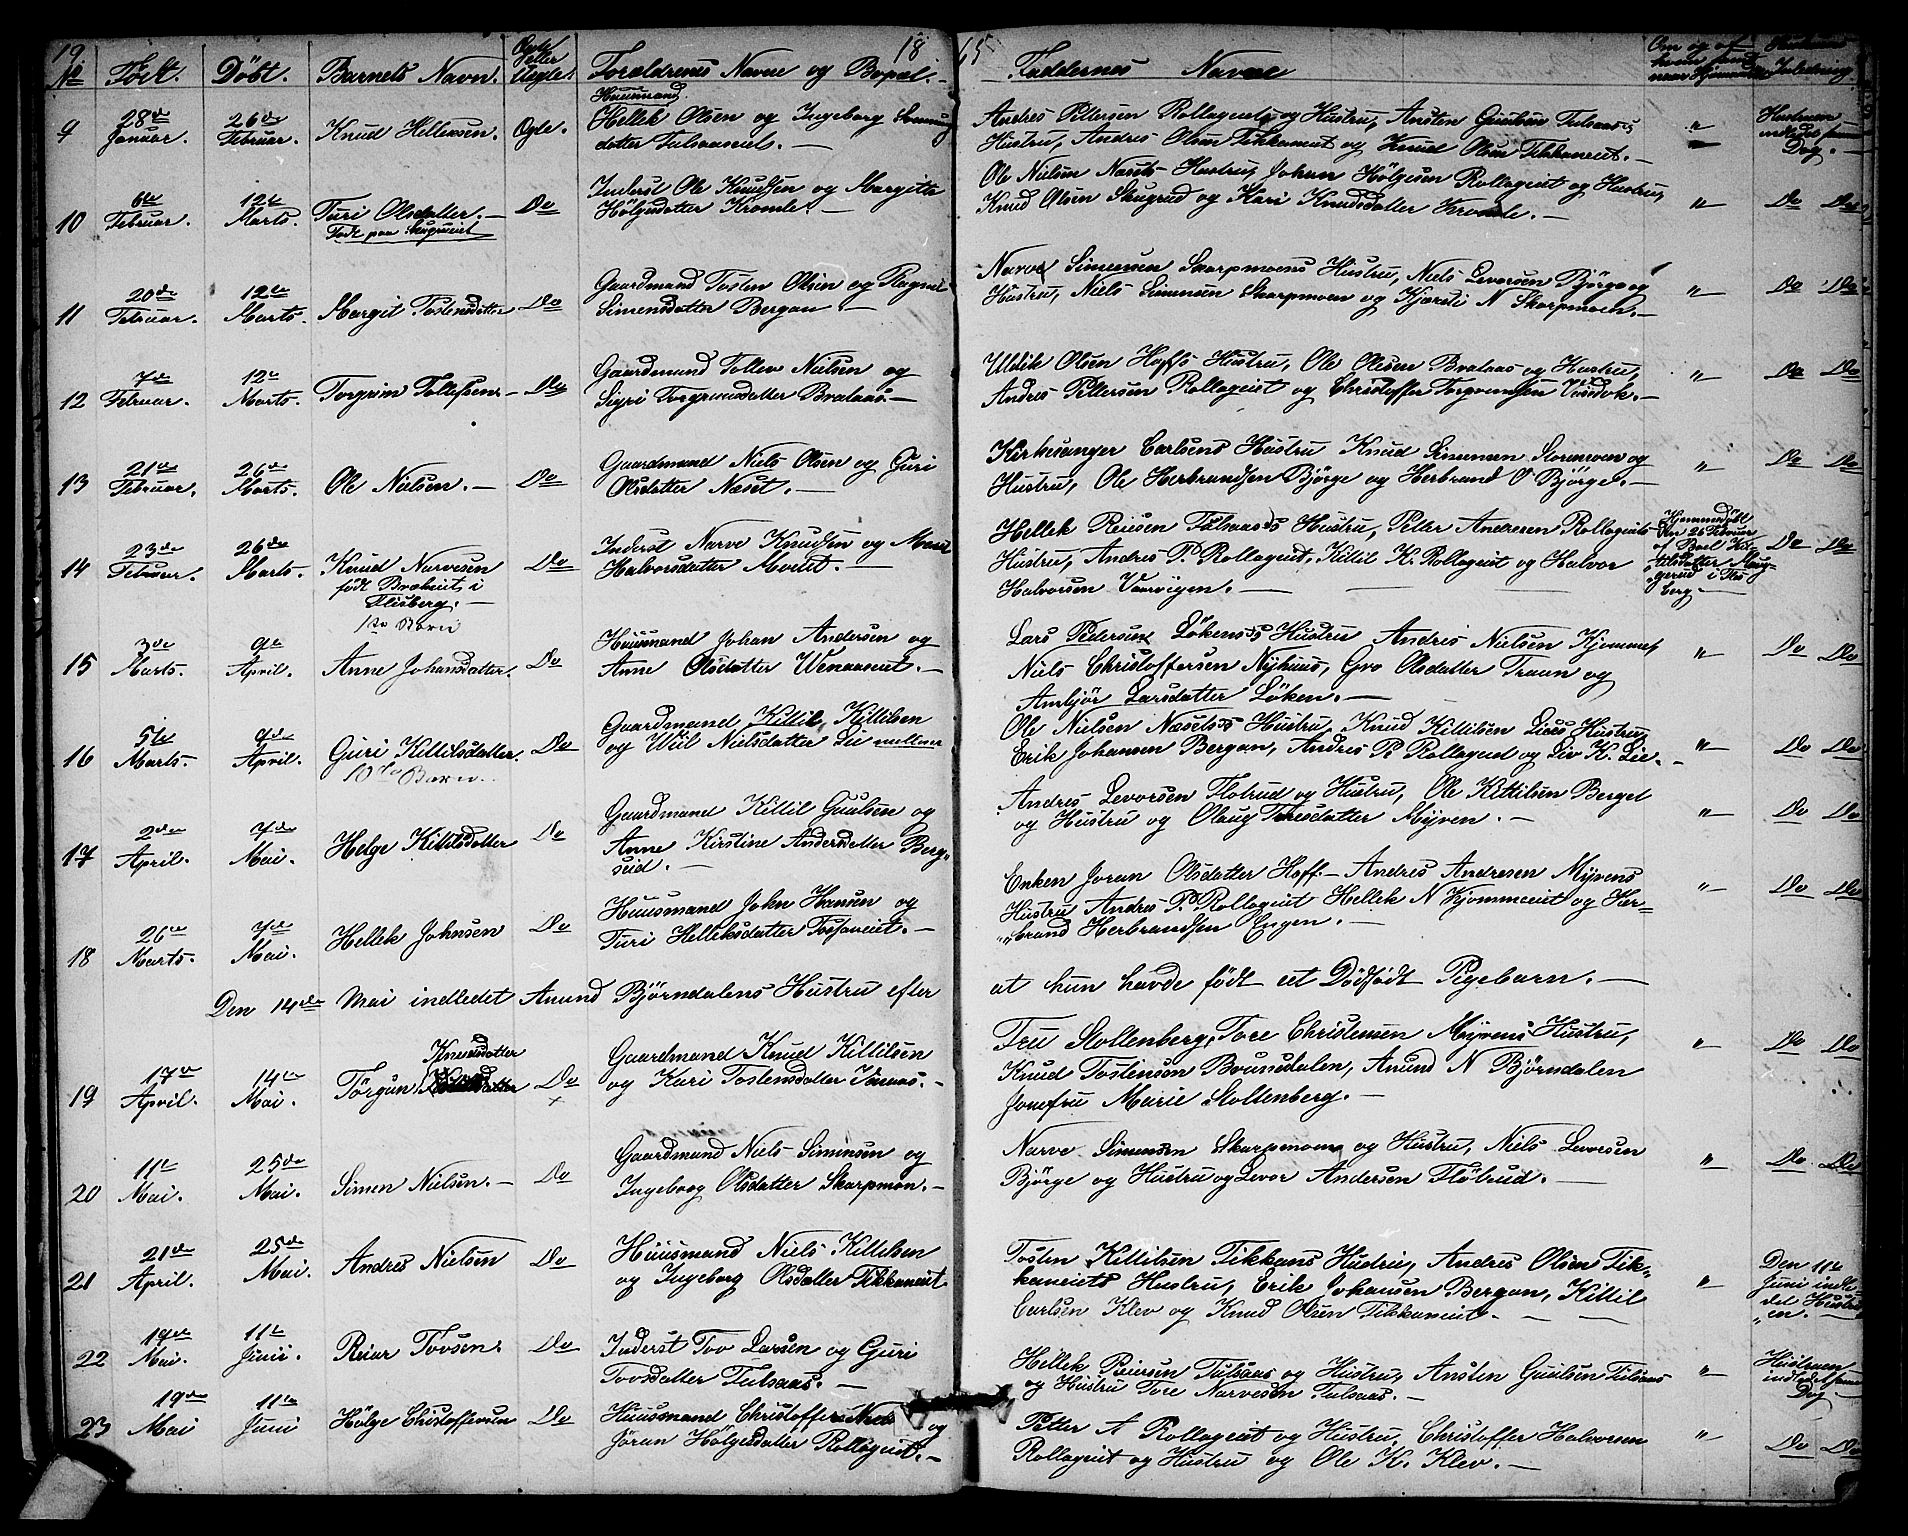 19 18 65
No Født. Döbt. Barnets Navn. Ægte eller Uægte. Forældrenes Navne og Bopæl. Faddernes Navne
9 28de Januar. 26de Februar. Knud Helleksen. Ægte. Huusmand Hellek Olsen og Ingeborg
datter Tulsaaseiet. —
Andres Pettersen Rollageiets og Hustru, Ansten Gunlsen Tulsaas
Hustru, Andres Olsen Tikkaneiet og Knud Olsen Tikkaneiet. —
" Hustruen indledet samme Dag. —
10 6te Februar. 12te Marts. Turi Olsdatter. — Do Inderst Ole Knudsen og Margitte
Født paa Skugrueiet Hölgesdatter Kromle. —
Ole Nielsen Næsets Hustru, Johan Hölgesen Rollageiet og Hustru,
Knud Olsen Skugrud og Kari Knudsdatter Kromle. —
" Do Do
11 20de Februar. 12te Marts. Margit Tostensdatter Do Gaardmand Tosten Olsen og Ragnil
Simensdatter Bergan. —
Narve Simensen Skarpmoens Hustru, Niels Levorsen Björge og
Hustru, Niels Simensen Skarpmoen og Kjersti N Skarpmoen. —
" Do Do
12 7de Februar. 12te Marts. Torgrim Tollefsen. — Do Gaardmand Tollev Nielsen og
Sigri Torgrimsdatter Brataas. —
Uldik Olsen Hoffs Hustru, Ole Olesen Brataas og Hustru,
Andres Pettersen Rollageiet og Christoffer Torgrimsen —
" Do Do
13 21de Februar. 26de Marts. Ole Nielsen. — Do Gaardmand Niels Olsen og Guri
Olsdatter Næset. —
Kirkesanger Carlsens Hustru Knud Simensen Storemoen og
Hustru, Ole Herbrandsen Björge og Herbrand O Björge. —
" Do Do
14 23de Februar. 26de Marts. Knud Narvesen Do Inderst Narve Knudsen og
født Brækeiet i Halvorsdatter Moeiet. —
Flisberg. —
1ste Barn
Hellek Reiersen Tulsaas's Hustru, Petter Andresen Rollageiets
Hustru, Andres P. Rollageiet, Kittil K. Rollageiet og Halvor
Halvorsen Vaarvigen. —
Hjemmedöbt den 26 Februar af
Do Do
15 3de Marts. 9de April. Anne Johansdatter. Do Huusmand Johan Andersen og
Anne Olsdatter Wenaaseiet. —
Lars Pedersen Lökens's Hustru Andres Nielsen Kjomme,
Niels Christoffersen Nyhuus, Gro Olsdatter Traan og
Anbjör Larsdatter Löken. —
" Do Do
16 5te Marts. 9de April. Guri Kittilsdatter. Do Gaardmand Kittil Kittilsen
10de Barn. og Wiil Nielsdatter Lie mellem
Ole Nielsen Næsets's Hustru, Knud Kittilsen Lies's Hustru,
Erik Johansen Bergan, Andres P. Rollageiet og Liv K. Lie. —
" Do Do
17 2den April. 7de Mai. Helge Kittilsdatter Do Gaardmand Kittil Guulsen og
Anne Kirstine Andersdatter Berg-
seid. —
Andres Levorsen Flotrud og Hustru, Ole Kittilsen Berget
og Hustru og Olaug Toresdatter Myren. —
" Do Do
18 26de Marts. 7de Mai. Hellek Johnsen Do Huusmand John Hansen og
Turi Helleksdatter Tosfoneiet. —
Enken Joran Olsdatter Hoff. — Andres Andresen Myrens
Hustru Andres P. Rollageiet Hellek N Kjommeeiet og Her-
brand Herbrandsen Engen. —
" Do Do
Den 14de Mai indledet Anund Björndalens Hustru efter at hun havde født et Dødfødt Pigebarn. —
19 17de April. 14de Mai. Törgun Knudsdatter Do Gaardmand Knud Kittilsen
og Kari Tostensdatter Varaas. —
Fru Stoltenberg, Tore Christensen Myrens Hustru,
Knud Tostensen Bruusedalen, Anund N Björndalen
Jomfru Marie Stoltenberg. —
" Do Do
20 11te Mai. 25de Mai. Simen Nielsen. — Do Gaardmand Niels Simensen og
Ingeborg Olsdatter Skarpmoen. —
Narve Simensen Skarpmoens og Hustru, Niels Levorsen
Björge og Hustru og Levor Andersen Flötrud. —
" Do Do
21 21de April. 25de Mai. Andres Nielsen Do Huusmand Niels Kittilsen
og Ingeborg Olsdatter Tikkaneiet
Tosten Kittilsen Tikkans Hustru, Andres Olsen Tik-
kaneiets Hustru, Erik Johansen Bergan, Kittil
Carlsen Klev og Knud Olsen Tikkaneiet. —
" Den 11te Juni indledet Hustruen. —
22 19de Mai. 11te Junii. Reiar Tovsen. Do Inderst Tov Larsen og Guri
Tovsdatter Tulsaas. —
Hellek Reiersen Tulsaas og Hustru, Ansten Guulsen Tulsaas
og Hustru Tore Narvesen Tulsaas. —
" Hustruen indledet samme Dag. —
23 19de Mai 11te Juni Hölge Christoffersen Do Huusmand Christoffer og
Jöran Hölgesdatter Rollageiet. —
Petter A Rollageiet og Hustru, Christoffer Halvorsen
Rollageiet og Hustru og Ole K. Klev. —
" Do Do